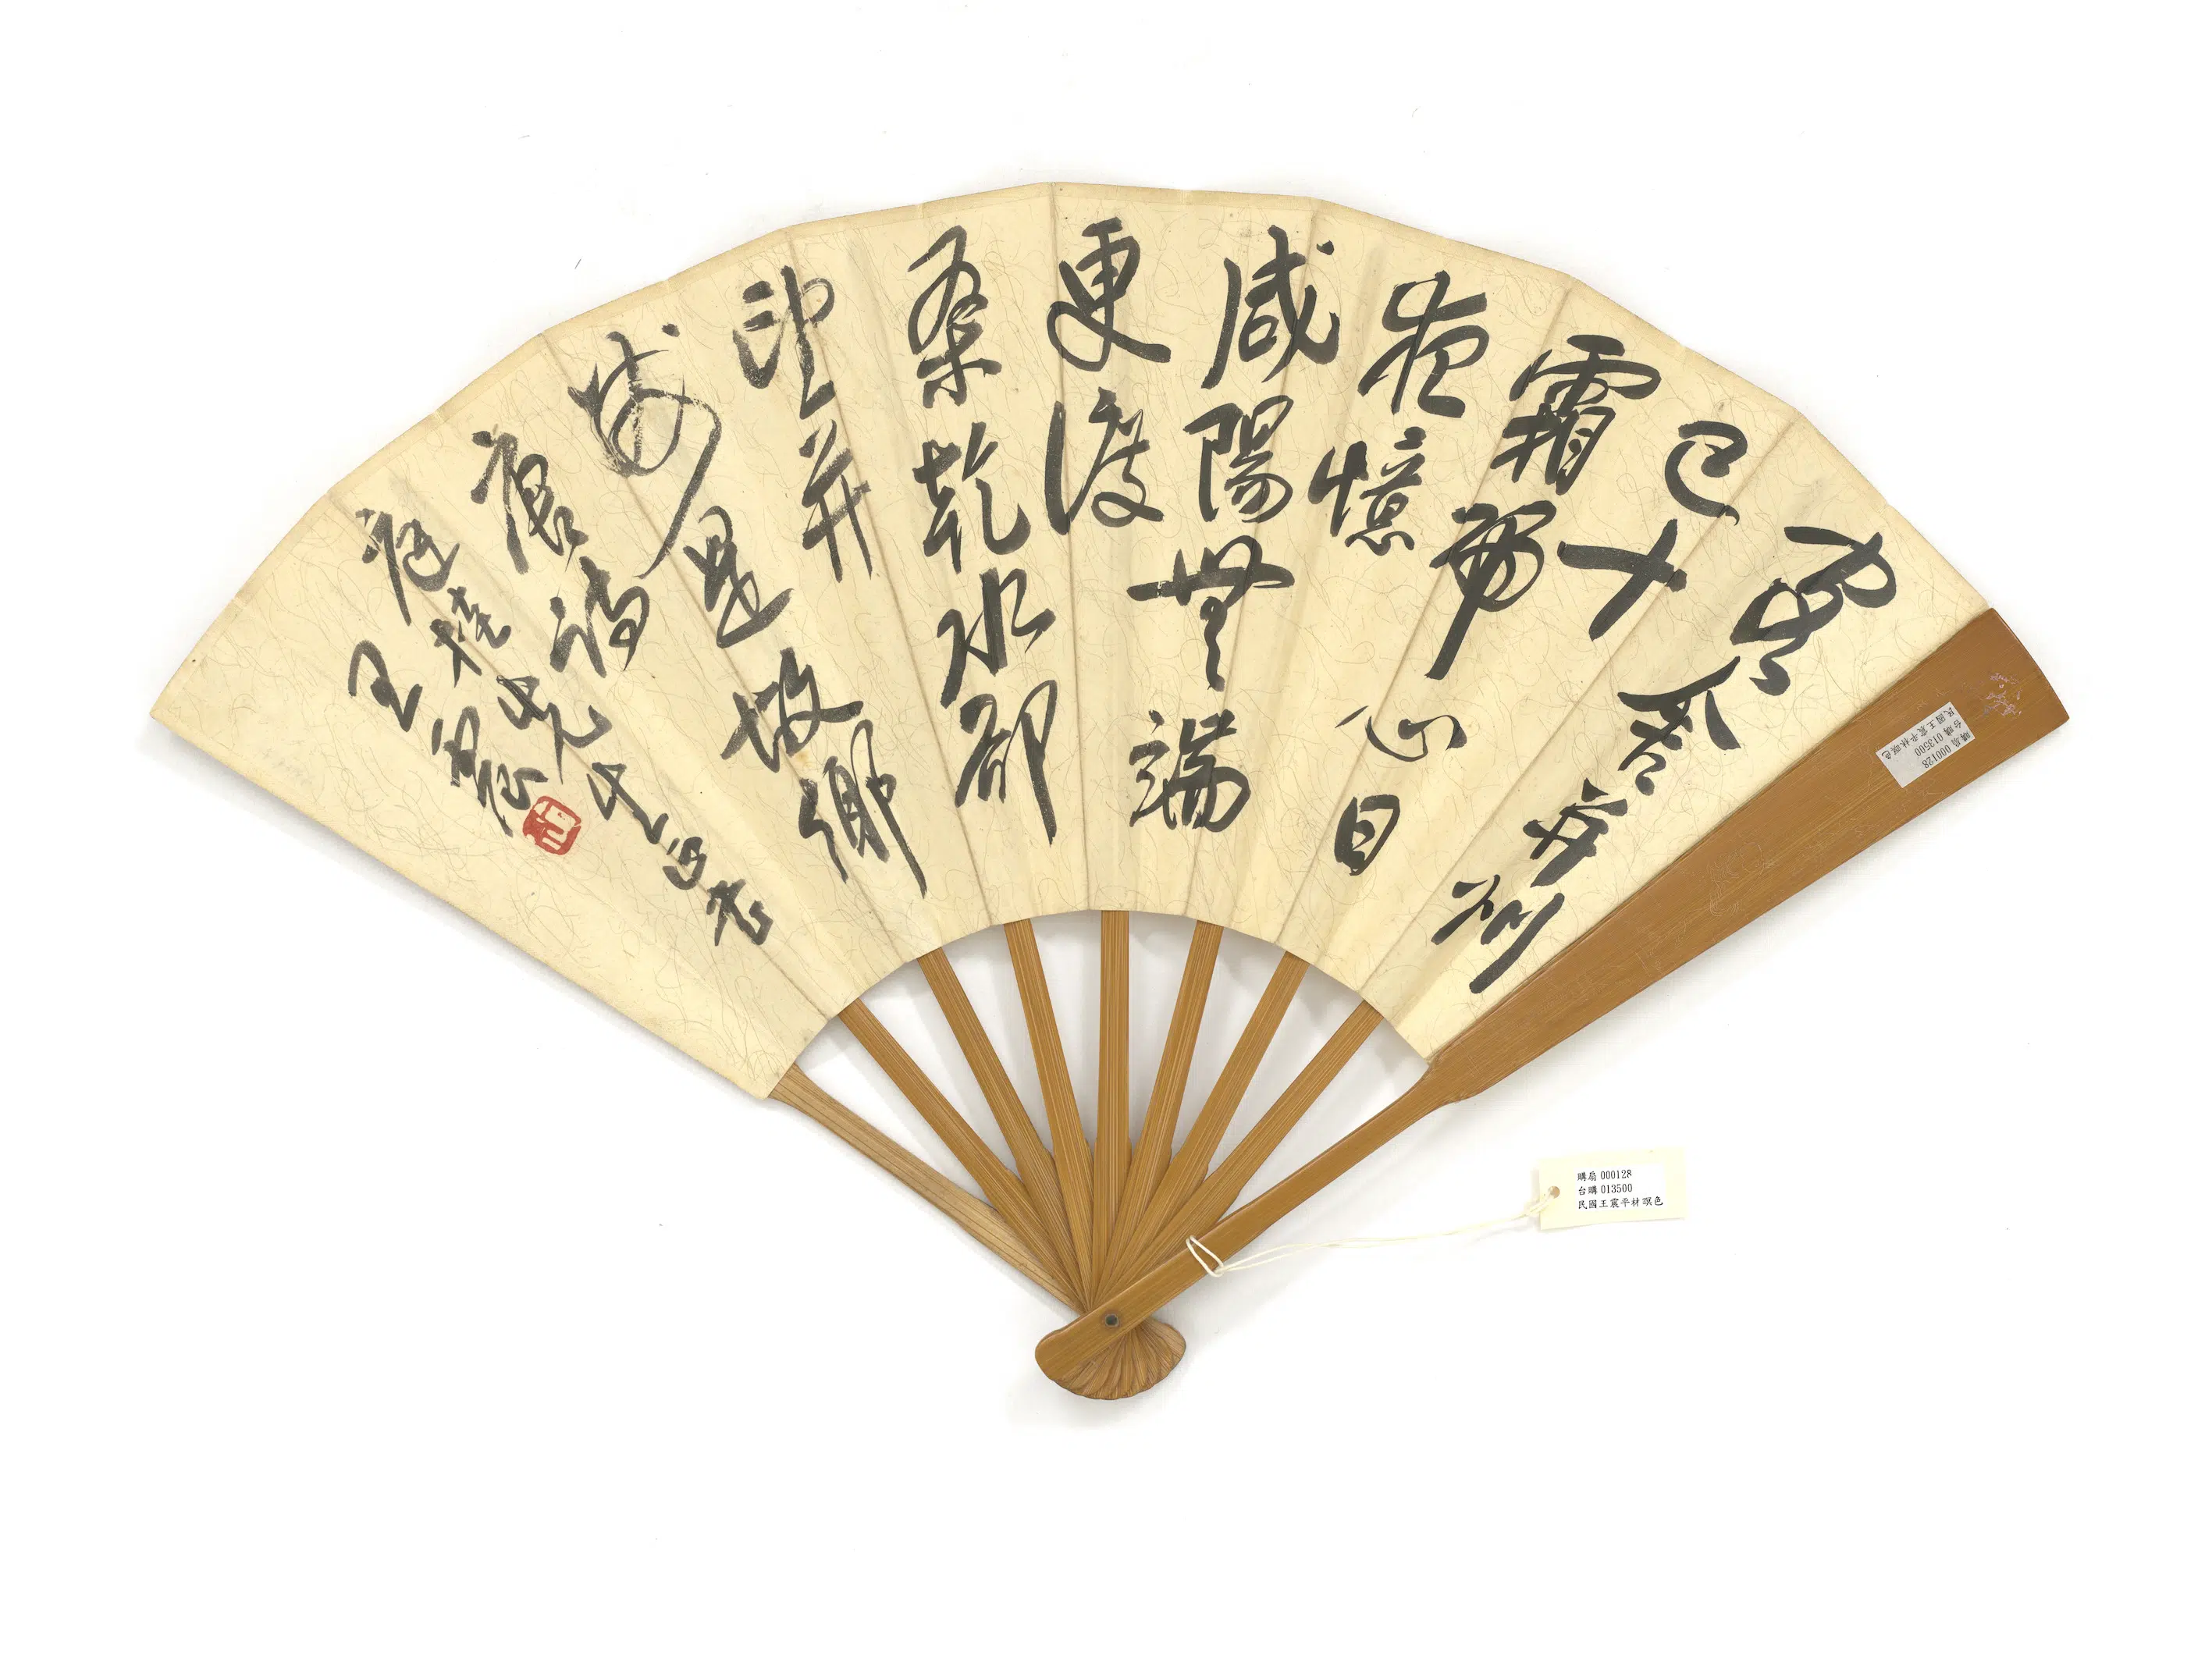 客舍并州
已十
霜歸心日
夜憶
咸陽無端
更渡
桑乾水却
望并
州是故鄉
唐詩
先生
王震
購扇 000128
台購 013500
民國王震平林暝色
購扇 000128
台購 013500
民國王震平林暝色